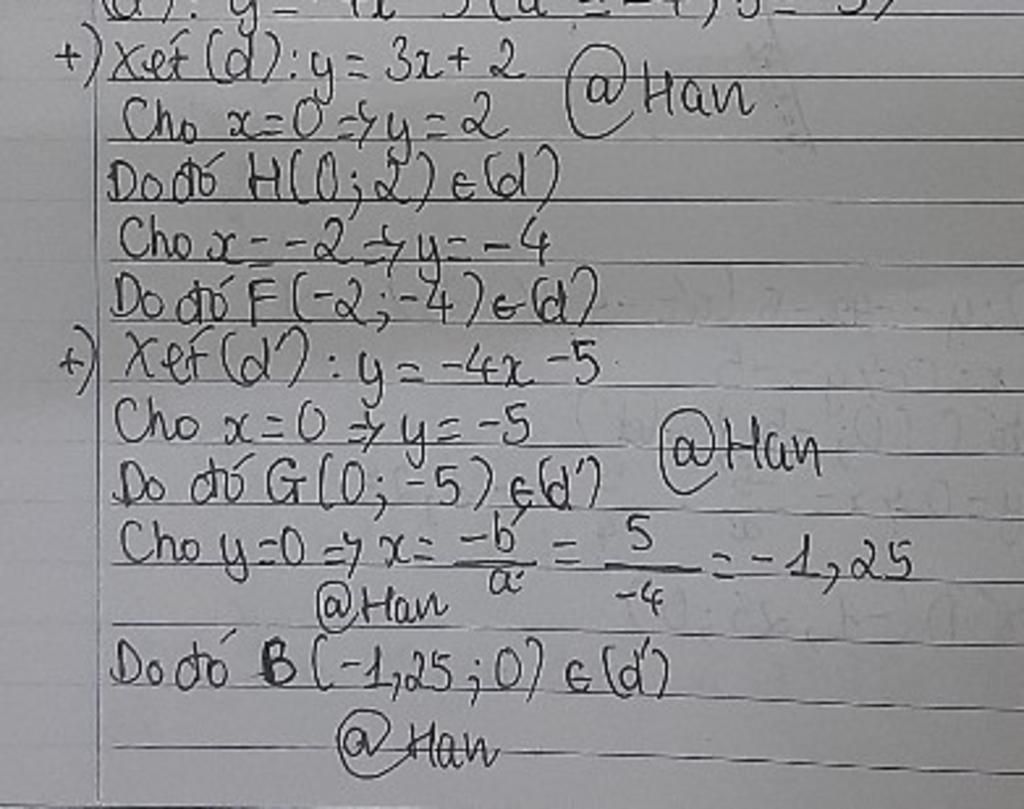 (d'): y = -4x - 5 (a' = -4; b' = -5)
+) Xét (d): y = 3x + 2 @Han
Cho x = 0 => y = 2
Do đó H(0; 2) ∈ (d)
Cho x = -2 => y = -4
Do đó F(-2; -4) ∈ (d)
+) Xét (d'): y = -4x - 5
Cho x = 0 => y = -5 @Han
Do đó G(0; -5) ∈ (d')
Cho y = 0 => x = -b'/a' = 5/-4 = -1,25
@Han
Do đó B(-1,25; 0) ∈ (d')
@Han